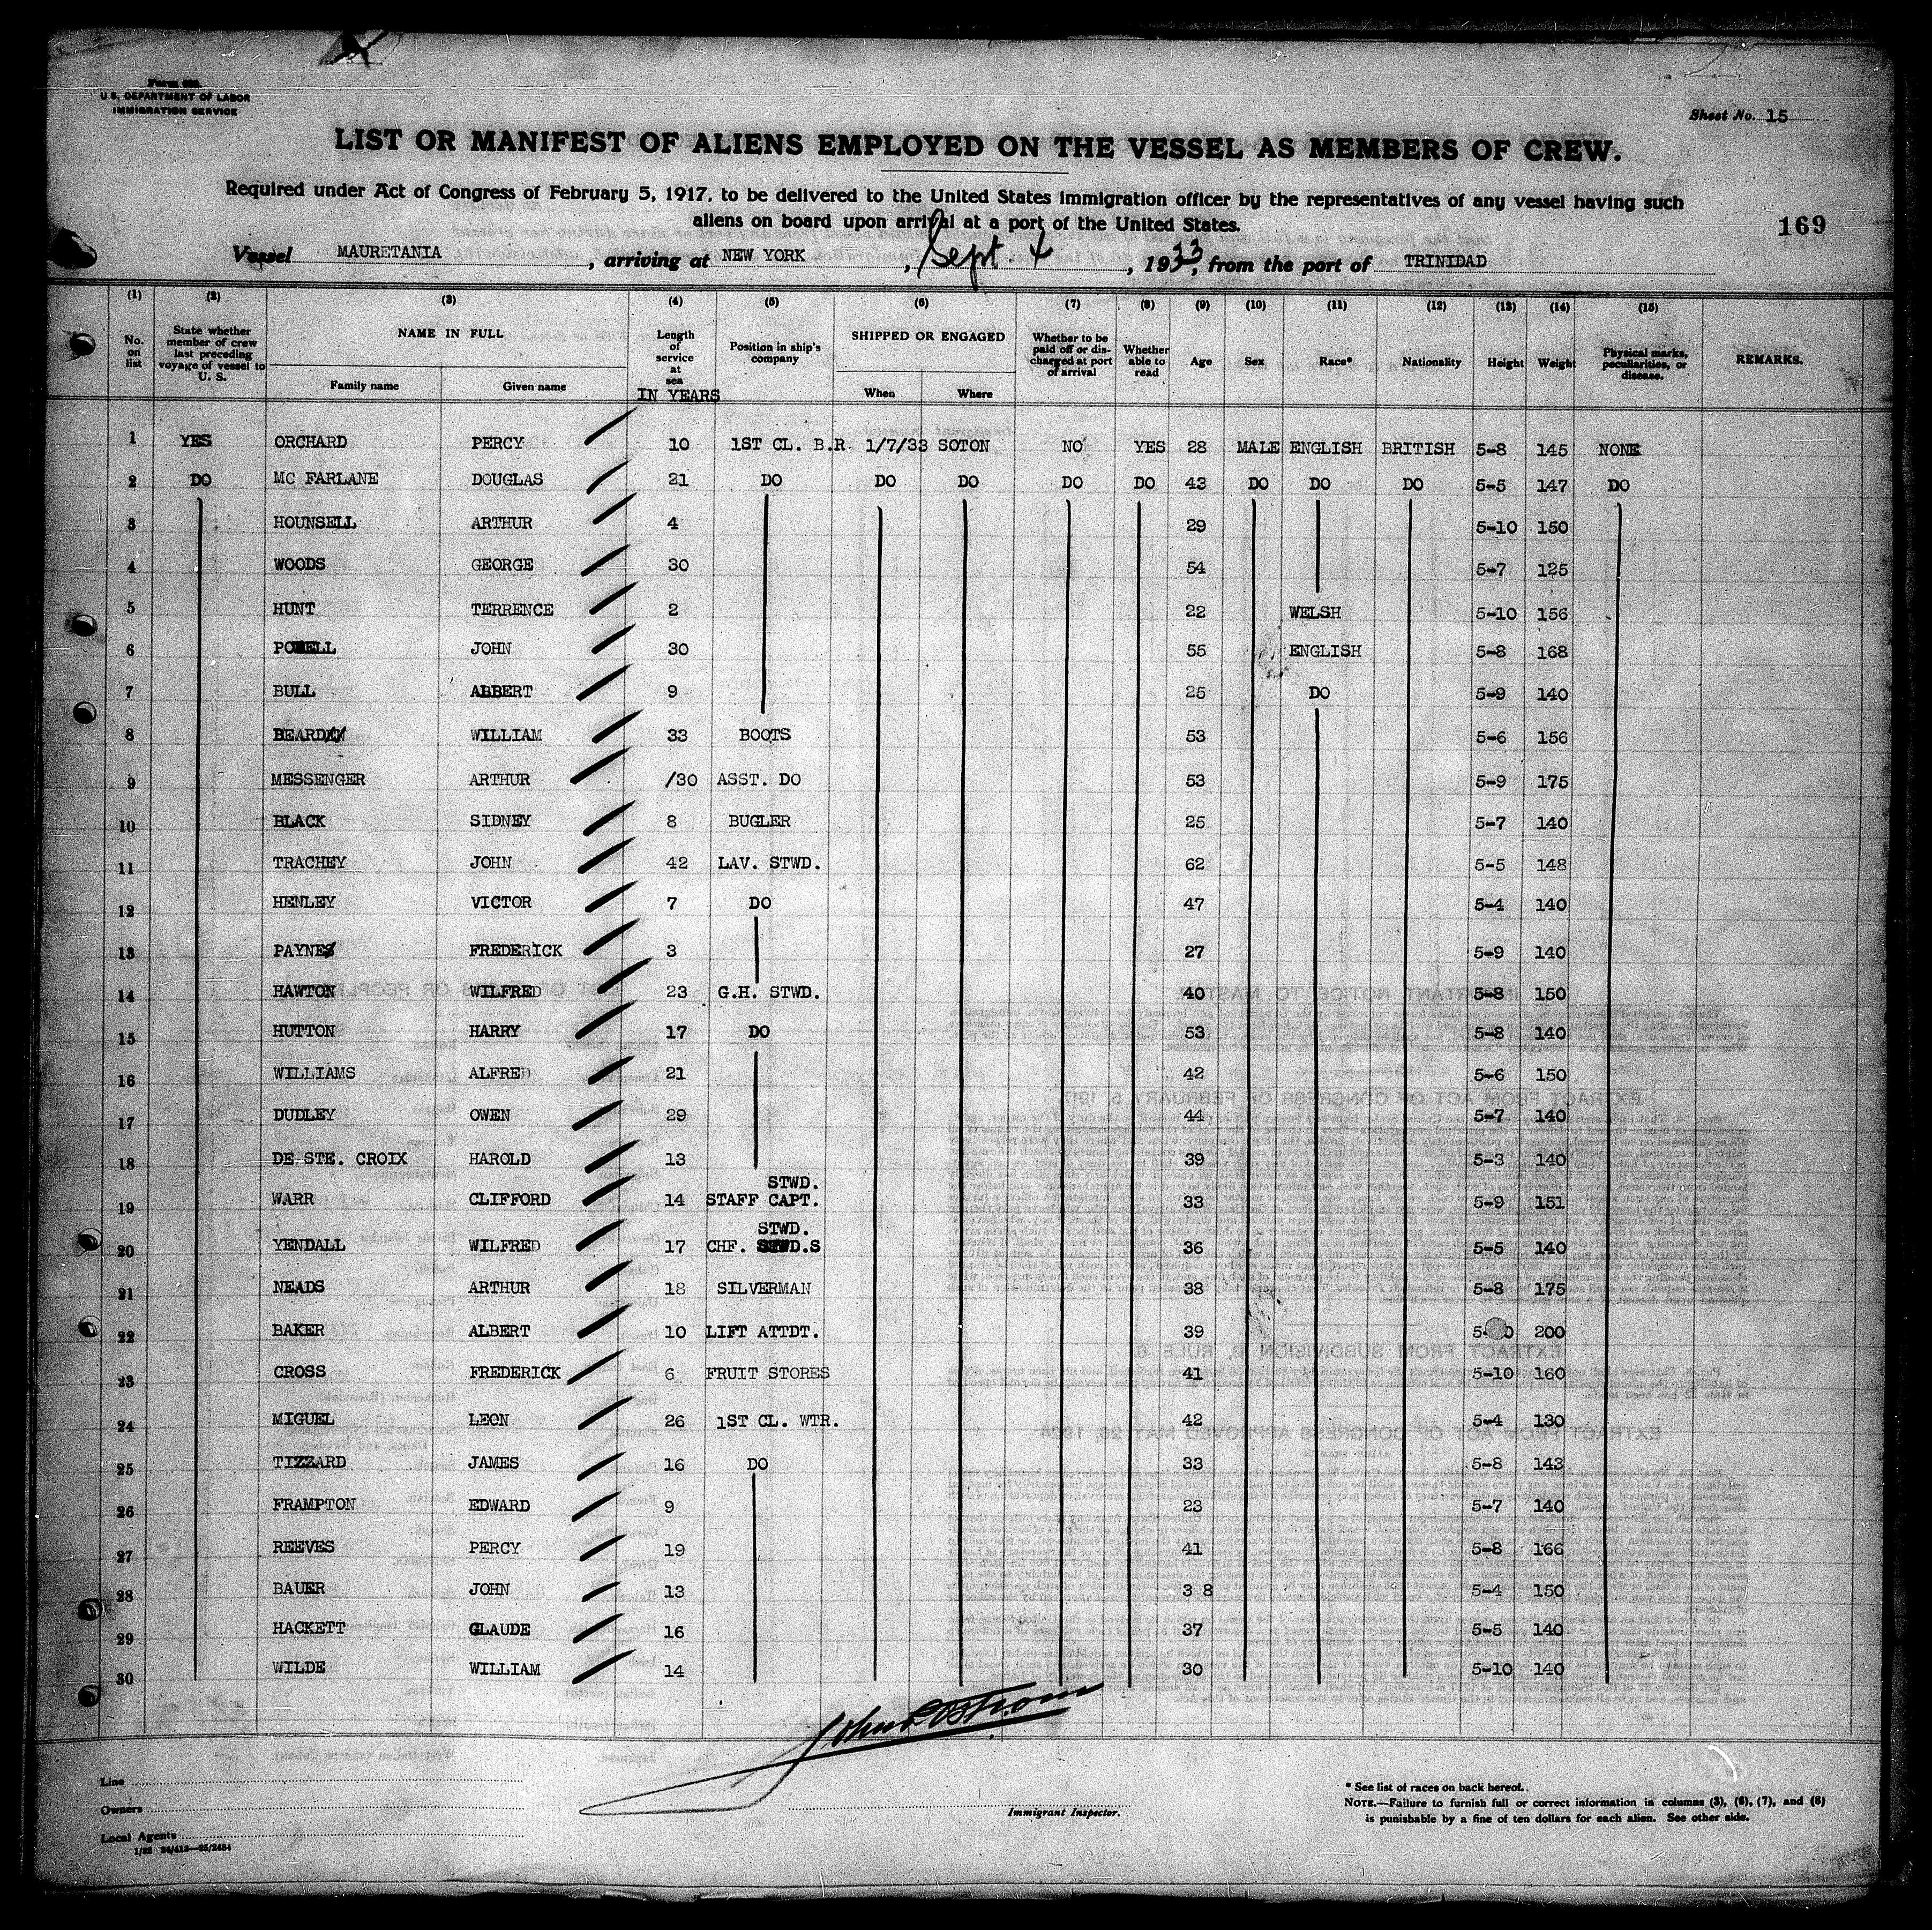 Form 680
U.S. DEPARTMENT OF LABOR
IMMIGRATION SERVICE
Sheet No. 15
LIST OR MANIFEST OF ALIENS EMPLOYED ON THE VESSEL AS MEMBERS OF CREW.
Required under Act of Congress of February 5, 1917, to be delivered to the United States immigration officer by the representatives of any vessel having such
aliens on board upon arrival at a port of the United States.
169
Vessel MAURETANIA, arriving at NEW YORK, Sept. 4, 1933, from the port of TRINIDAD
(1) (2) (3) (4) (5) (6) (7) (8) (9) (10) (11) (12) (13) (14) (15)
No. on list State whether member of crew last preceding voyage of vessel to U. S. NAME IN FULL Family name Given name Length of service at sea IN YEARS Position in ship's company SHIPPED OR ENGAGED When Where Whether to be paid off or discharged at port of arrival Whether able to read Age Sex Race* Nationality Height Weight Physical marks, peculiarities, or disease. REMARKS.
1 YES ORCHARD PERCY 10 1ST CL. B.R. 1/7/33 SOTON NO YES 28 MALE ENGLISH BRITISH 5-8 145 NONE
2 DO MC FARLANE DOUGLAS 21 DO DO DO DO DO 43 DO DO DO 5-5 147 DO
3 HOUNSELL ARTHUR 4 29 5-10 150
4 WOODS GEORGE 30 54 5-7 125
5 HUNT TERRENCE 2 22 WELSH 5-10 156
6 POWELL JOHN 30 55 ENGLISH 5-8 168
7 BULL ALBERT 9 25 DO 5-9 140
8 BEARD WILLIAM 33 BOOTS 53 5-6 156
9 MESSENGER ARTHUR /30 ASST. DO 53 5-9 175
10 BLACK SIDNEY 8 BUGLER 25 5-7 140
11 TRACHEY JOHN 42 LAV. STWD. 62 5-5 148
12 HENLEY VICTOR 7 DO 47 5-4 140
13 PAYNE FREDERICK 3 27 5-9 140
14 HAWTON WILFRED 23 G.H. STWD. 40 5-8 150
15 HUTTON HARRY 17 DO 53 5-8 140
16 WILLIAMS ALFRED 21 42 5-6 150
17 DUDLEY OWEN 29 44 5-7 140
18 DE STE. CROIX HAROLD 13 39 5-3 140
19 WARR CLIFFORD 14 STWD. STAFF CAPT. 33 5-9 151
20 YENDALL WILFRED 17 STWD. CHF. STWD.S 36 5-5 140
21 NEADS ARTHUR 18 SILVERMAN 38 5-8 175
22 BAKER ALBERT 10 LIFT ATTDT. 39 200
23 CROSS FREDERICK 6 FRUIT STORES 41 5-10 160
24 MIGUEL LEON 26 1ST CL. WTR. 42 5-4 130
25 TIZZARD JAMES 16 DO 33 5-8 143
26 FRAMPTON EDWARD 9 23 5-7 140
27 REEVES PERCY 19 41 5-8 166
28 BAUER JOHN 13 3 8 5-4 150
29 HACKETT CLAUDE 16 37 5-5 140
30 WILDE WILLIAM 14 30 5-10 140
Line
Owners
Local Agents
Immigrant Inspector.
* See list of races on back hereof.
NOTE.—Failure to furnish full or correct information in columns (3), (6), (7), and (8)
is punishable by a fine of ten dollars for each alien. See other side.